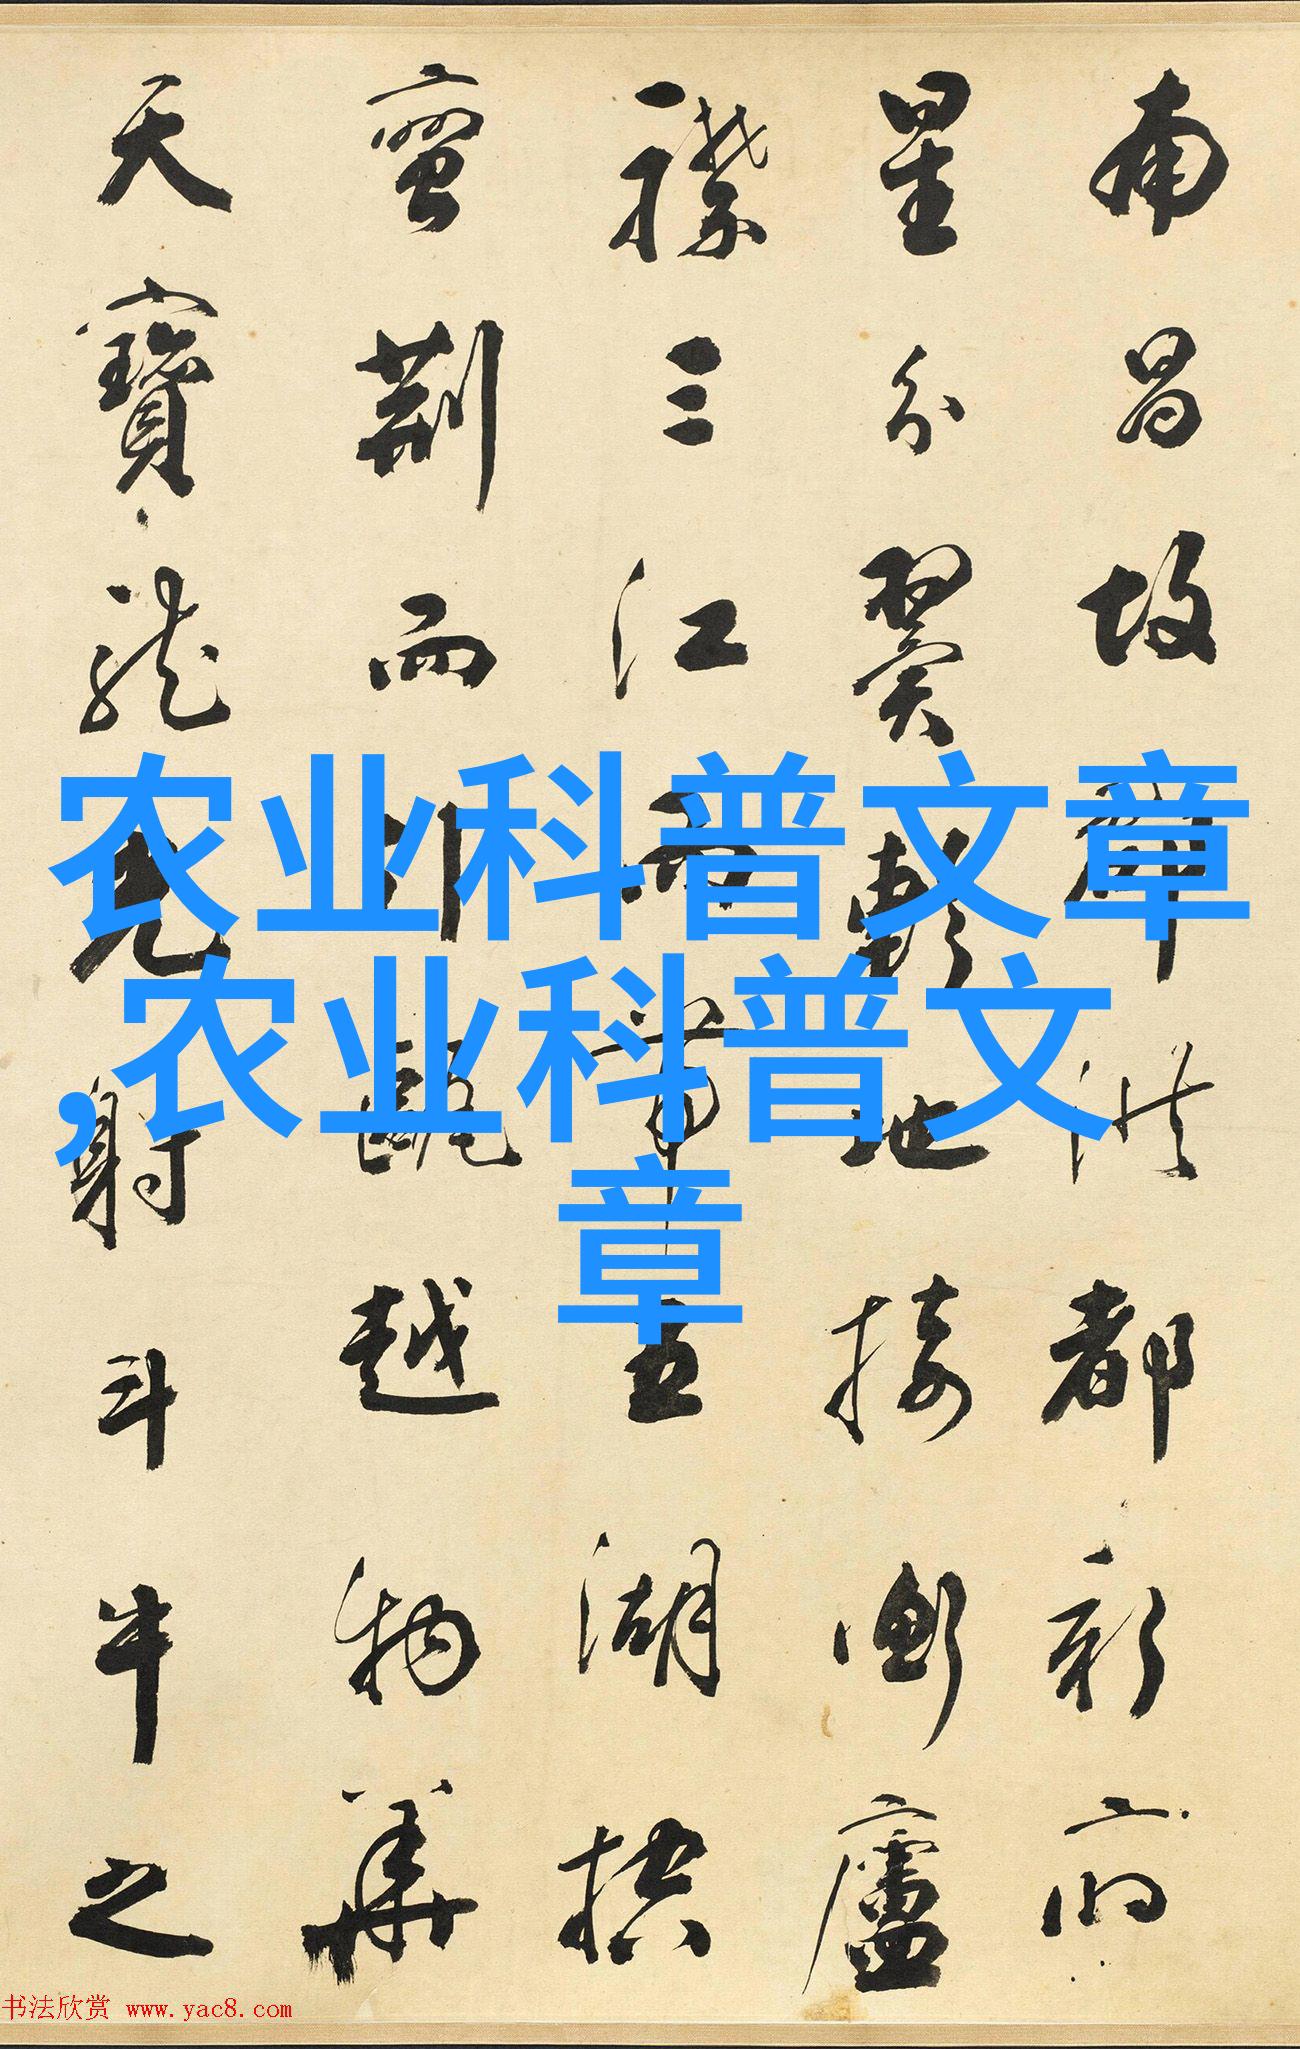 南昌故郡洪都新府
星分翼軫地接衡廬
襟三江而帶五湖控
蠻荊而引甌越物華
天寶龍光射斗牛之
农业科普文章
,农业科普文
章
书法欣赏 www.yac8.com